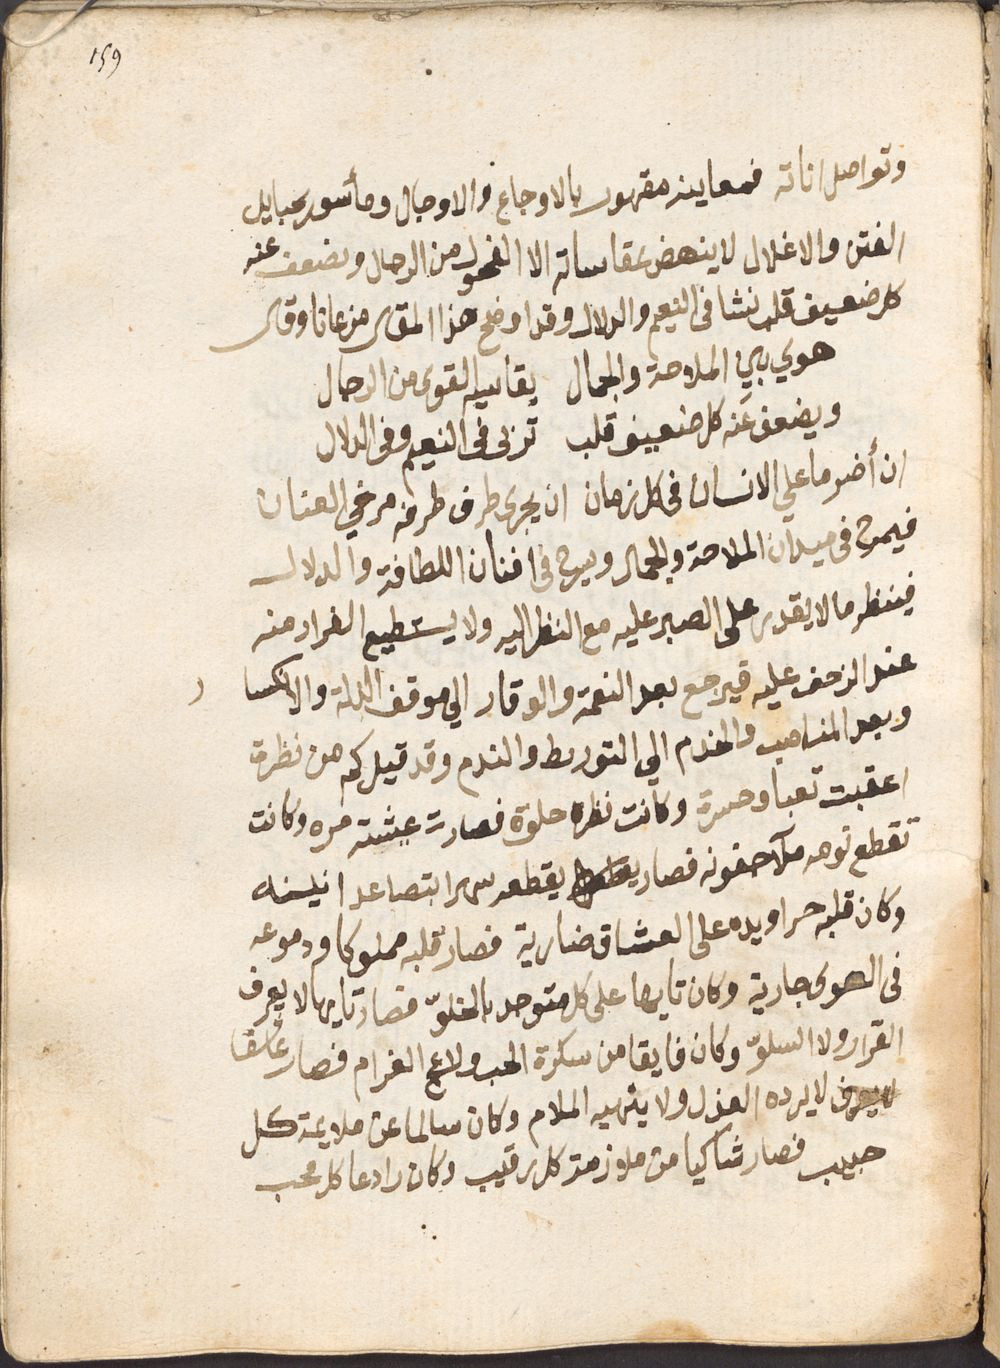 159
وتواصل اناته فمعاينه مقهور بالاوجاع والاوجال ومأسور بحبايل
الفتن والاغلال لا ينهض بمقاساته الا الفحول من الرجال ويضعف عنه
كل ضعيف قلب نشا في النعيم والدلال وقد اوضح هذا المقال من عانا وقال
هوي بين الملاحة والجمال يقاسيه القوي من الرجال
ويضعف عنه كل ضعيف قلب تربى في النعيم وفي الدلال
ان أضر ما علي الانسان في كل زمان ان يجري طرف طرفه مرخي العنان
فيمرح في ميدان الملاحة والجمال ويسرح في افنان اللطافة والدلال
فينظر ما لا يقدر على الصبر عليه مع النظر اليه ولا يستطيع الفرار منه
عند الزحف عليه فيرجع بعد النعمة والوقار الي موقف الذلة والانكسار
وبعد المناصب والخدم الي التوريط والندم وقد قيل كم من نظرة
اعقبت تعبا وحسرة وكانت نظرة حلوة فصارت عيشته مره وكانت
تقطع نومه ملآ جفونه فصار يقطعه سهرا بتصاعد انينه
وكان قلبه حرا ويده على العشاق ضارية فصار قلبه مملوكا ودموعه
في الهوى جارية وكان تايها على كل متوجد بالخلوّ فصار تايها لا يعرف
القرار ولا السلوّ وكان فايقا من سكرة الحب ولاعج الغرام فصار عاشقا
لا يرده العذل ولا ينهيه الملام وكان سالما عن ملايمة كل
حبيب فصار شاكيا من ملازمة كل رقيب وكان رادعا كل محب